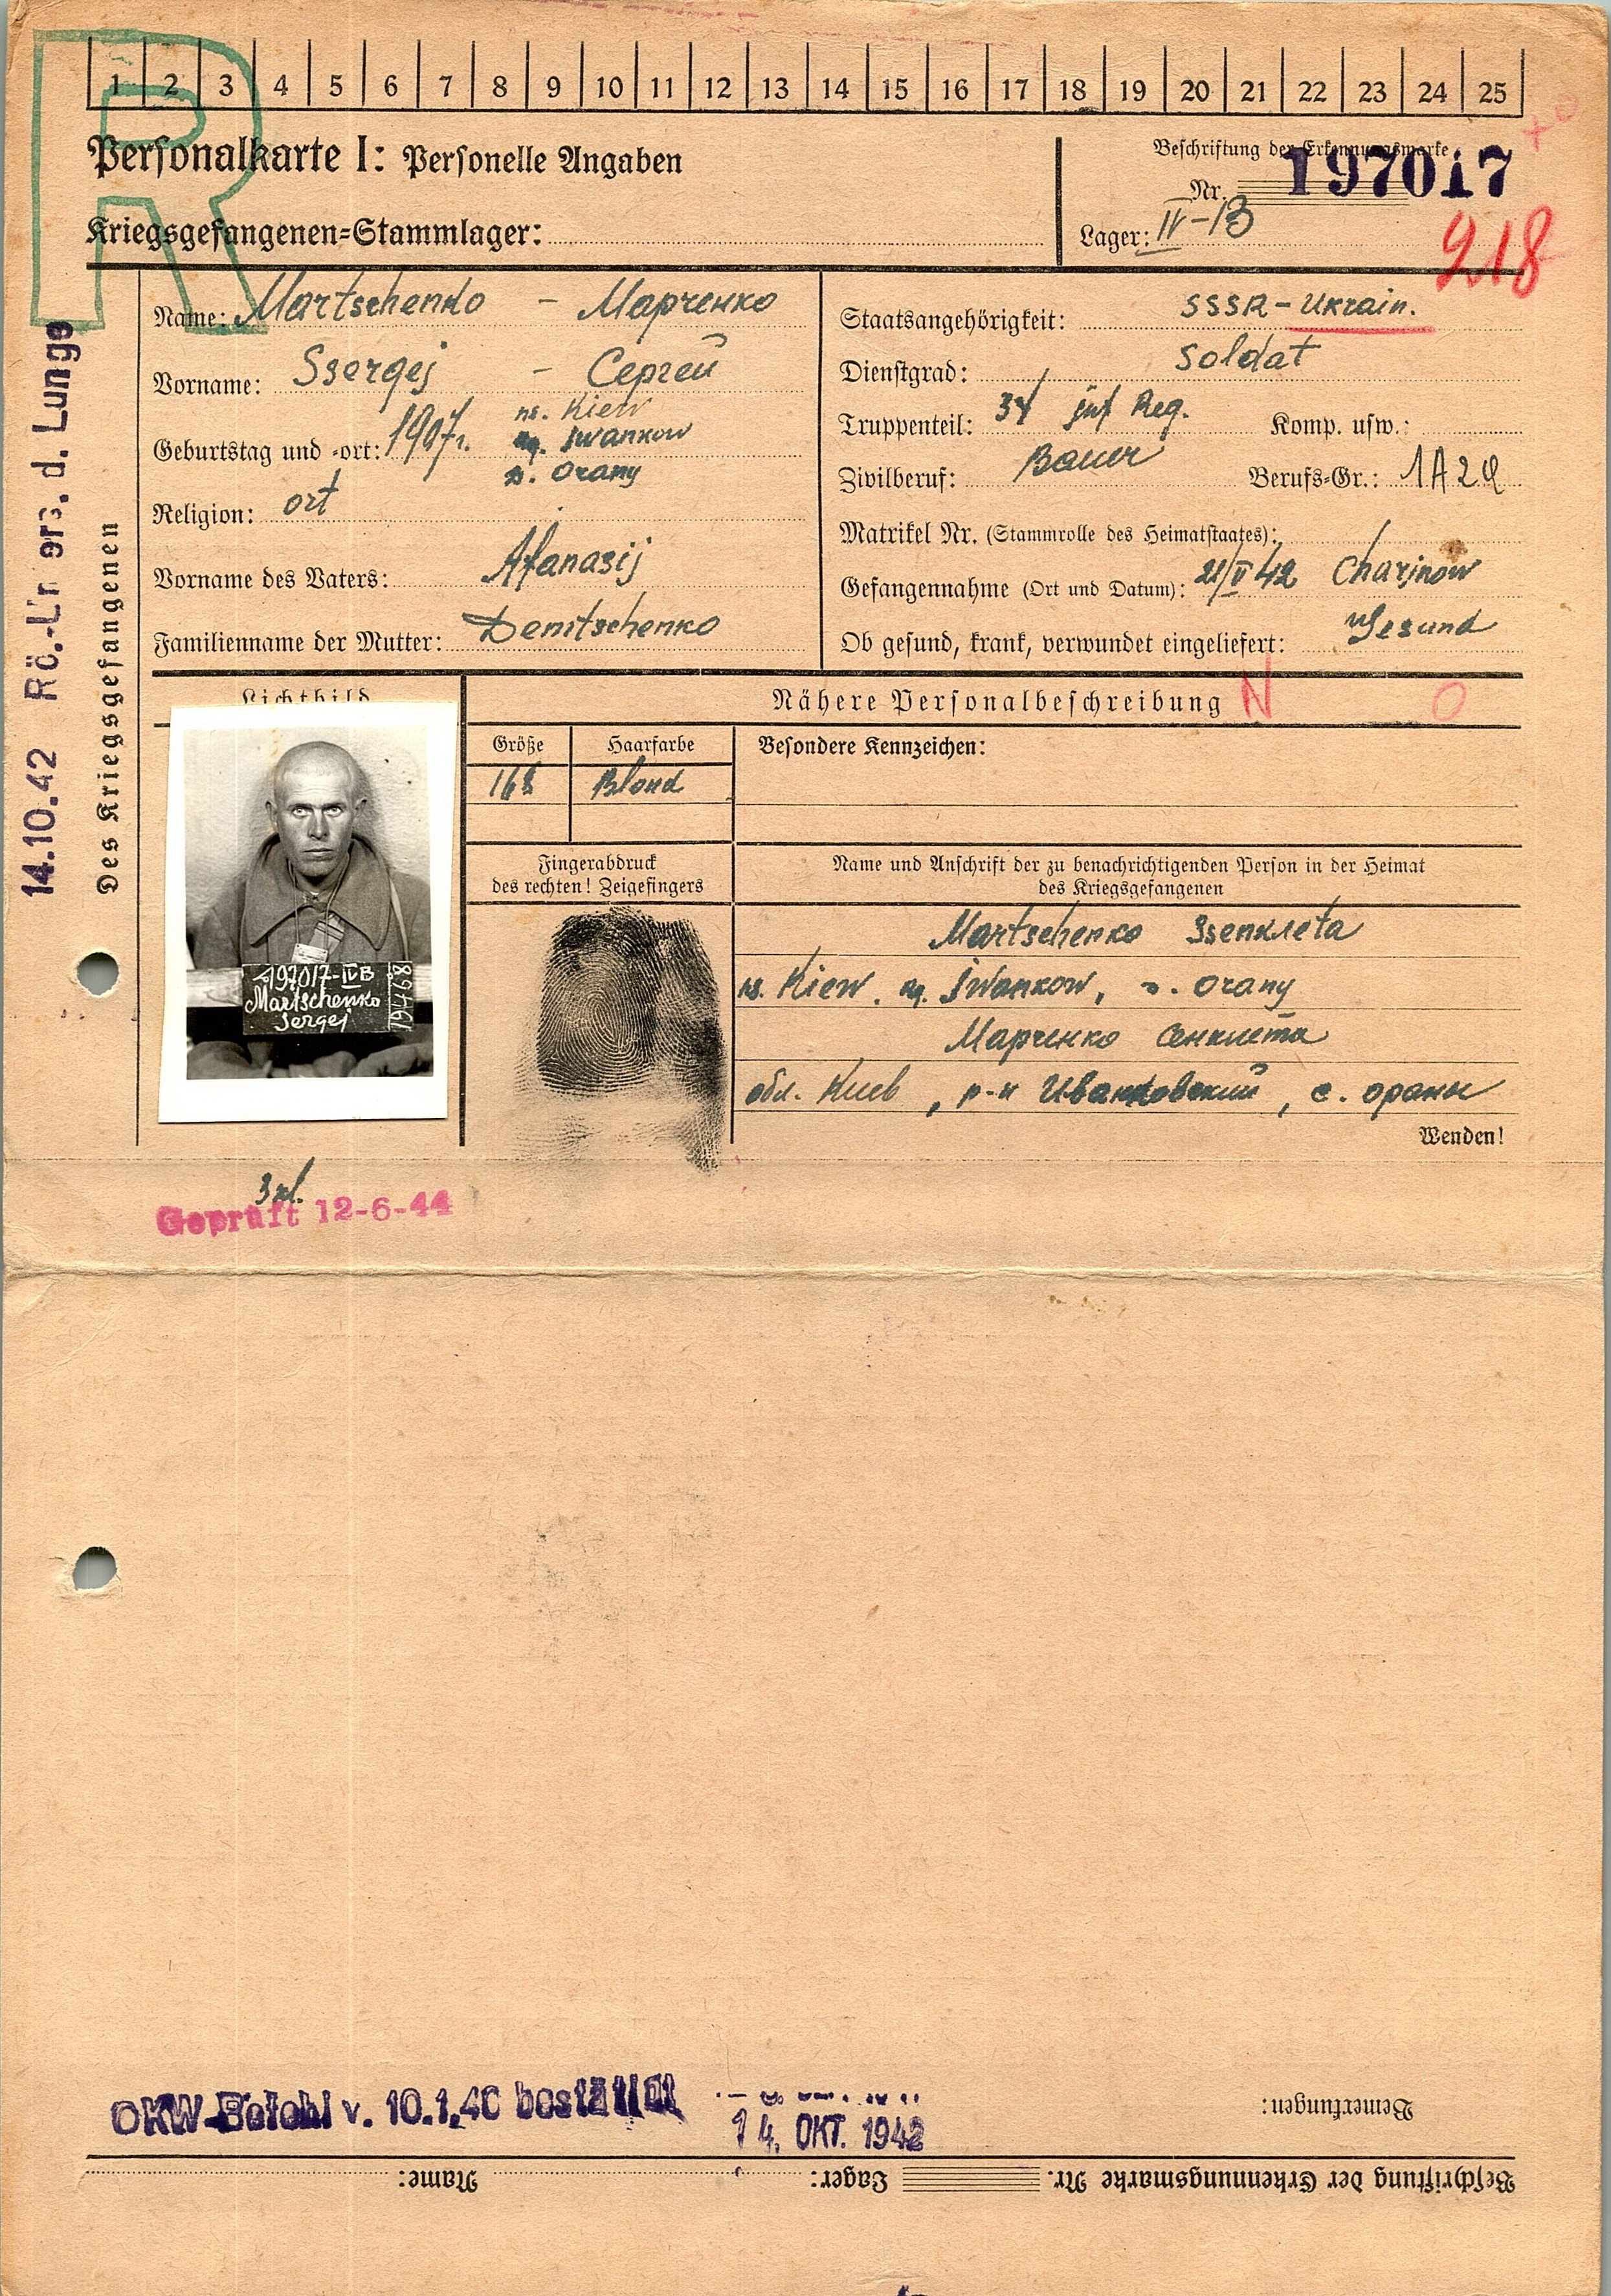 1 2 3 4 5 6 7 8 9 10 11 12 13 14 15 16 17 18 19 20 21 22 23 24 25
R
Personalkarte I: Personelle Angaben
Kriegsgefangenen-Stammlager:
Beschriftung der Erkennungsmarke
Nr. 197017
Lager: IV-B
218
Name: Martschenko - Марченко
Vorname: Ssergej - Сергей
Geburtstag und -ort: 1907 Kiew
Iwankow
Orany
Religion: ort
Vorname des Vaters: Afanasij
Familienname der Mutter: Demtschenko
Staatsangehörigkeit: SSSR - Ukrain.
Dienstgrad: Soldat
Truppenteil: inf Reg. Komp. usw.:
Zivilberuf: Bauer Berufs-Gr.: 1A2
Matrikel Nr. (Stammrolle des Heimatstaates):
Gefangennahme (Ort und Datum): 21/V 42 Charjnow
Ob gesund, krank, verwundet eingeliefert: Gesund
Des Kriegsgefangenen
14.10.42 d. Lunge
Lichtbild
Nähere Personalbeschreibung N O
Größe Haarfarbe Besondere Kennzeichen:
168 Blond
Fingerabdruck
des rechten! Zeigefingers
Name und Anschrift der zu benachrichtigenden Person in der Heimat
des Kriegsgefangenen
Martschenko
Kiew, Iwankow, Orany
Марченко Сенклета
обл. Киев, р-н Иванковский, с. ораны
Wenden!
197017-IVB
Martschenko
Sergej
Geprüft 12-6-44
OKW-Befehl v. 10.1.40 bestätigt
14. OKT. 1942
Bemerkungen:
Beschriftung der Erkennungsmarke Nr. Lager: Name: